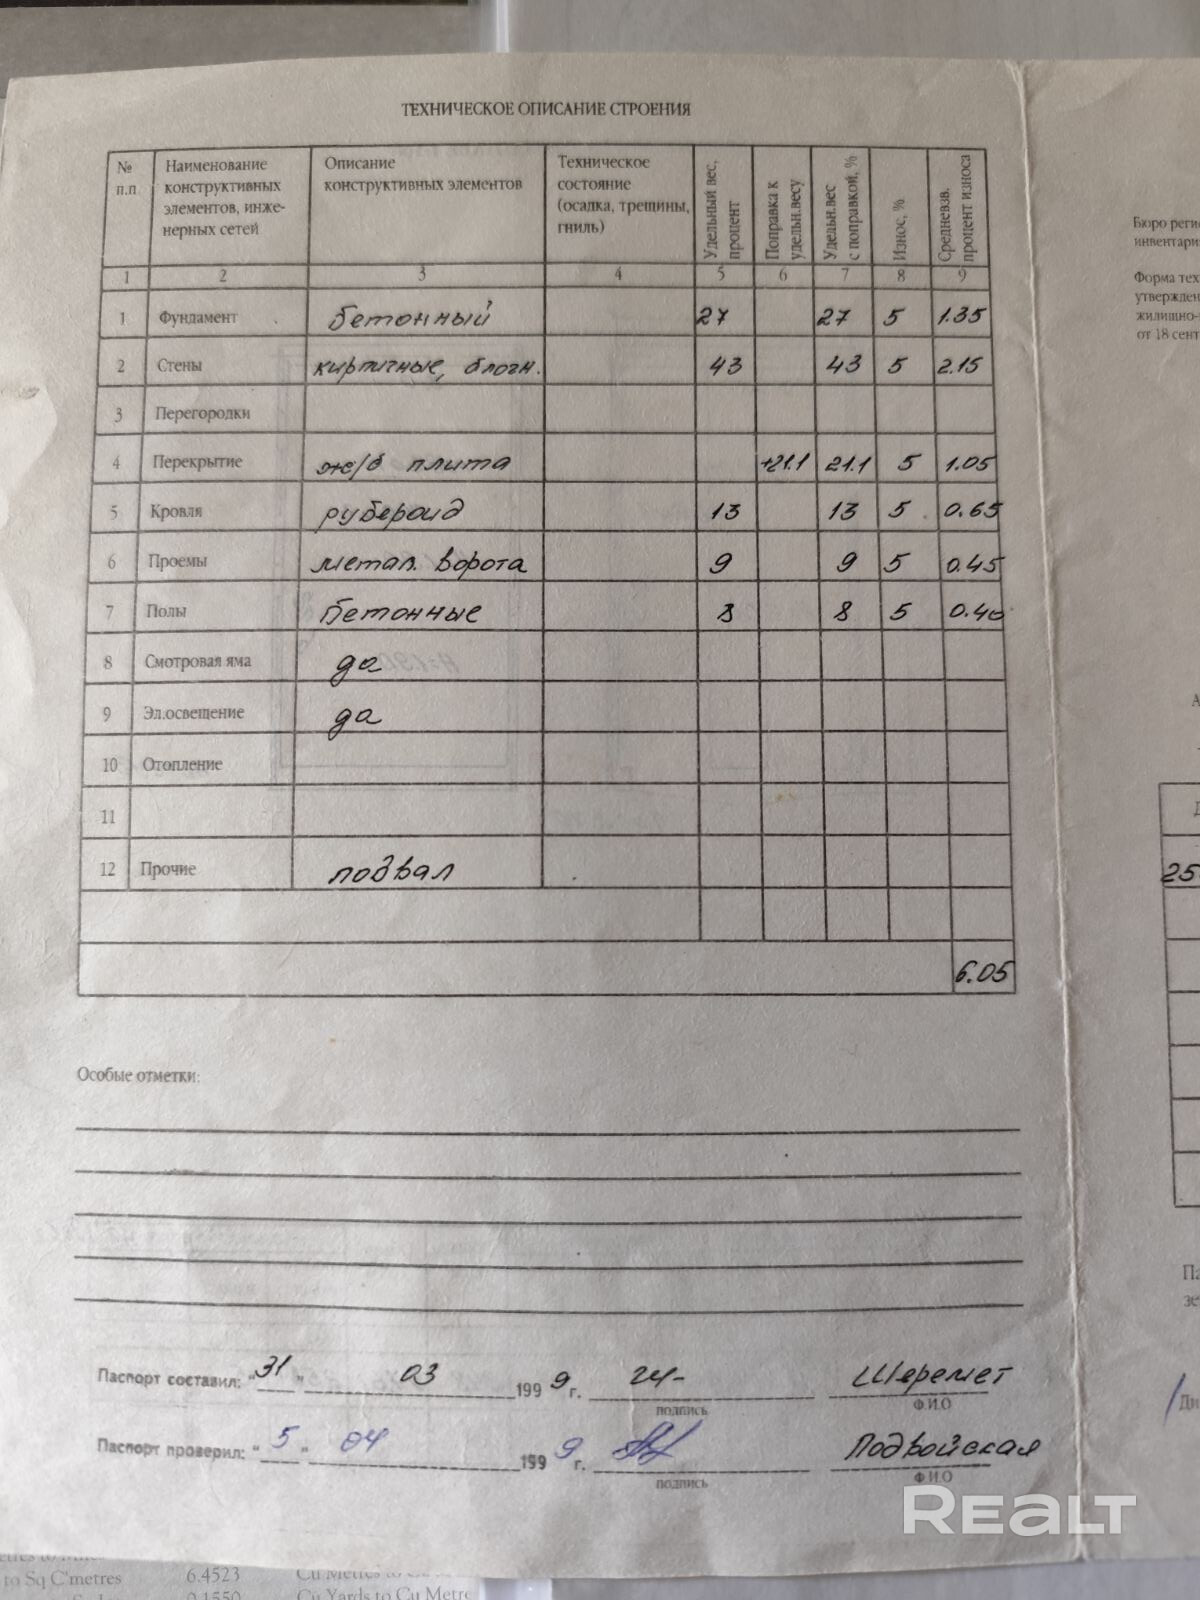 ТЕХНИЧЕСКОЕ ОПИСАНИЕ СТРОЕНИЯ
№ п.п
Наименование конструктивных элементов, инже- нерных сетей
Описание конструктивных элементов
Техническое состояние (осадка, трещины, гниль)
Удельный вес, процент
Поправка к удельн.весу
Удельн.вес с поправкой, %
Износ, %
Средневзв. процент износа
1 2 3 4 5 6 7 8 9
1 Фундамент бетонный 27 27 5 1.35
2 Стены кирпичные, блочн. 43 43 5 2.15
3 Перегородки
4 Перекрытие ж/б плита +21.1 21.1 5 1.05
5 Кровля рубероид 13 13 5 0.65
6 Проемы метал. ворота 9 9 5 0.45
7 Полы бетонные 8 8 5 0.40
8 Смотровая яма да
9 Эл.освещение да
10 Отопление
11
12 Прочие подвал
6.05
Особые отметки:
Паспорт составил: "31" 03 1999 г. Шеремет
подпись Ф.И.О
Паспорт проверил: "5" 04 1999 г. Подвойская
подпись Ф.И.О
Бюро реги
инвентари
Форма тех
утвержден
жилищно-
от 18 сент
А
Д
25
Па
зе
Ди
REALT
to Sq C'metres 6.4523 Cu Metres to Cu
0.1550 Cu Yards to Cu Metre